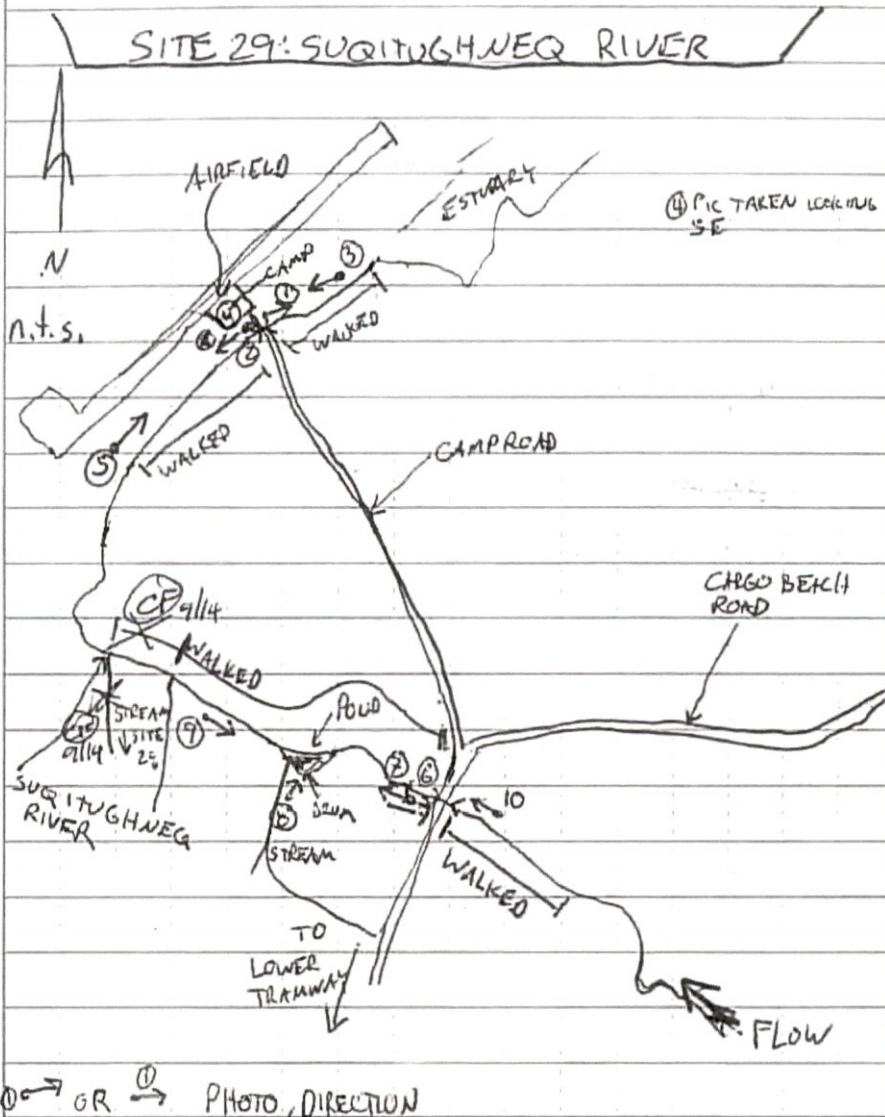 SITE 29: SUQITUGHNEQ RIVER
AIRFIELD
ESTUARY
④ PIC TAKEN LOOKING
SE
N
n.t.s.
CAMP
③
①
④
②
WALKED
WALKED
⑤
CAMP ROAD
CARGO BEACH
ROAD
CF 9/14
WALKED
POND
9/14
STREAM
↓ SITE
28
⑨
⑦ ⑥
10
SUQITUGHNEQ
RIVER
⑧
DRUM
STREAM
WALKED
TO
LOWER
TRAMWAY
FLOW
①→ OR ①→ PHOTO, DIRECTION